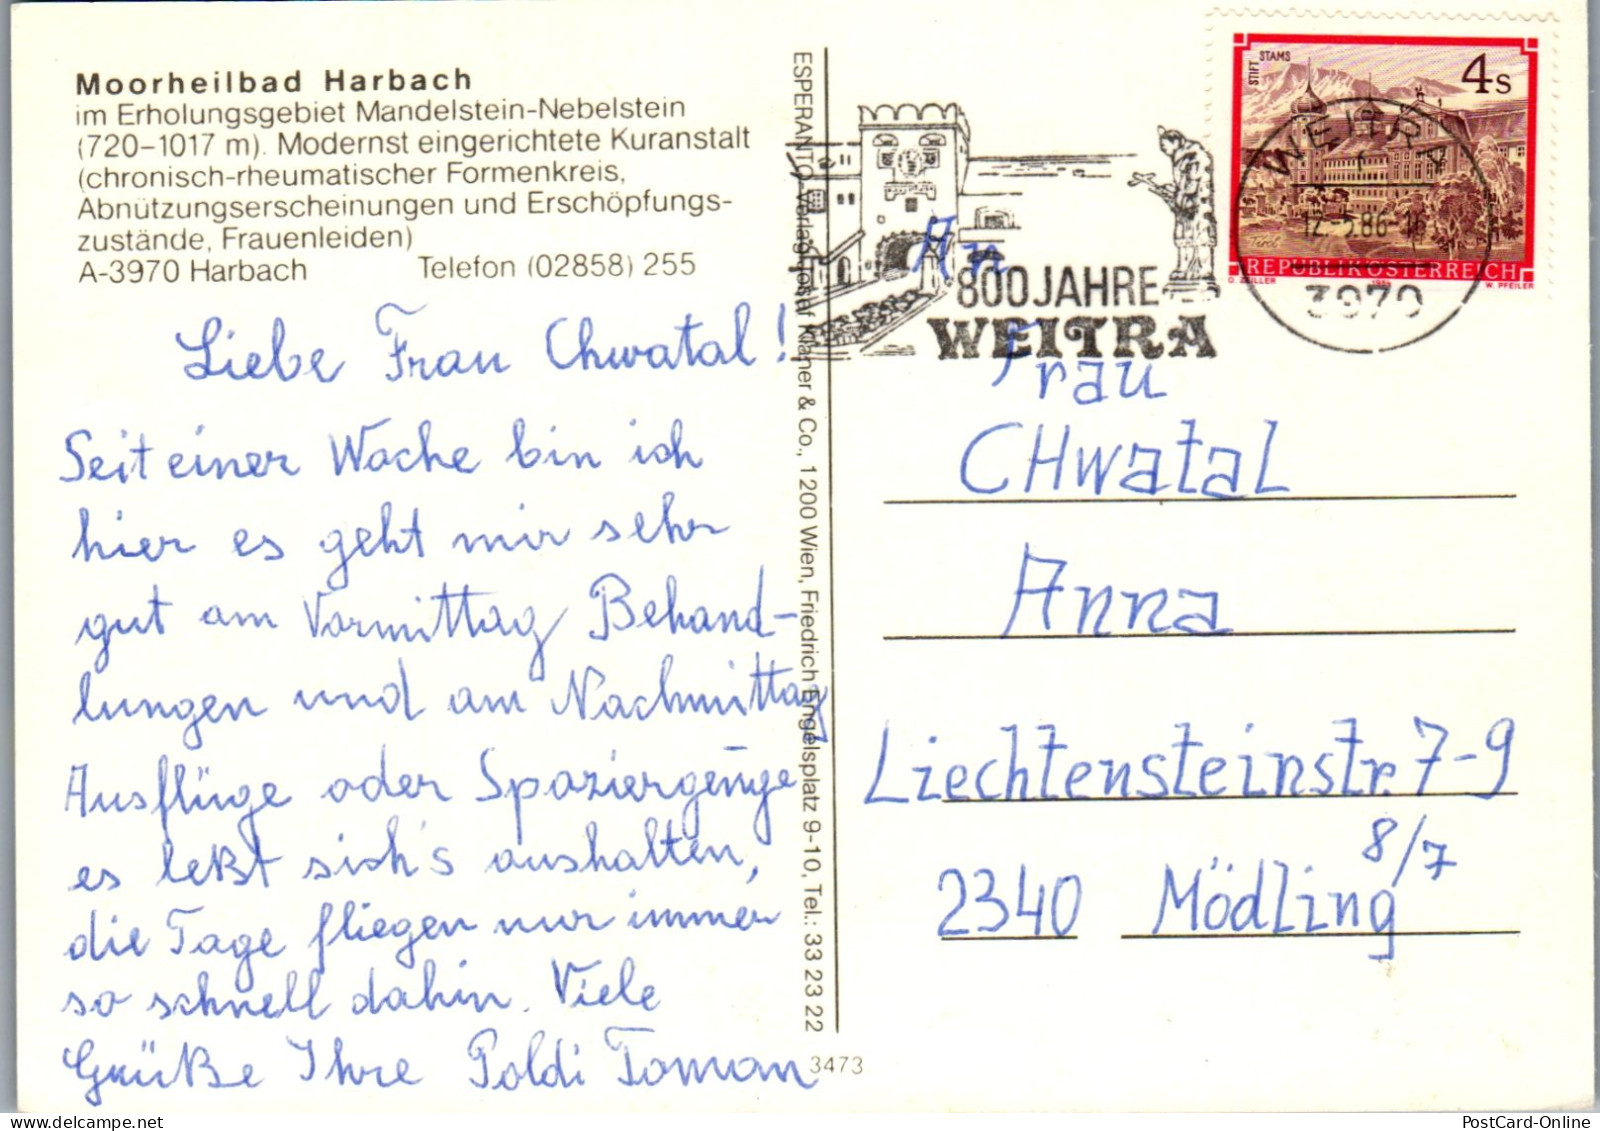 Moorheilbad Harbach
im Erholungsgebiet Mandelstein-Nebelstein
(720–1017 m). Modernst eingerichtete Kuranstalt
(chronisch-rheumatischer Formenkreis,
Abnützungserscheinungen und Erschöpfungs-
zustände, Frauenleiden)
A-3970 Harbach Telefon (02858) 255
Liebe Frau Chwatal!
Seit einer Woche bin ich
hier es geht mir sehr
gut am Vormittag Behand-
lungen und am Nachmittag
Ausflüge oder Spaziergenge
es leßt sich's aushalten,
die Tage fliegen nur immer
so schnell dahin. Viele
Grüße Ihre Poldi Toman
ESPERANTO-Verlag Josef Klamer & Co., 1200 Wien, Friedrich Engelsplatz 9-10, Tel.: 33 23 22
3473
800 JAHRE
WEITRA
STIFT STAMS
4s
Tirol
REPUBLIK ÖSTERREICH
W. PFEILER
WEITRA
12.-5.86-16
3970
An
Frau
CHwataL
Anna
Liechtensteinstr. 7-9
8/7
2340 Mödling
PostCard-Online